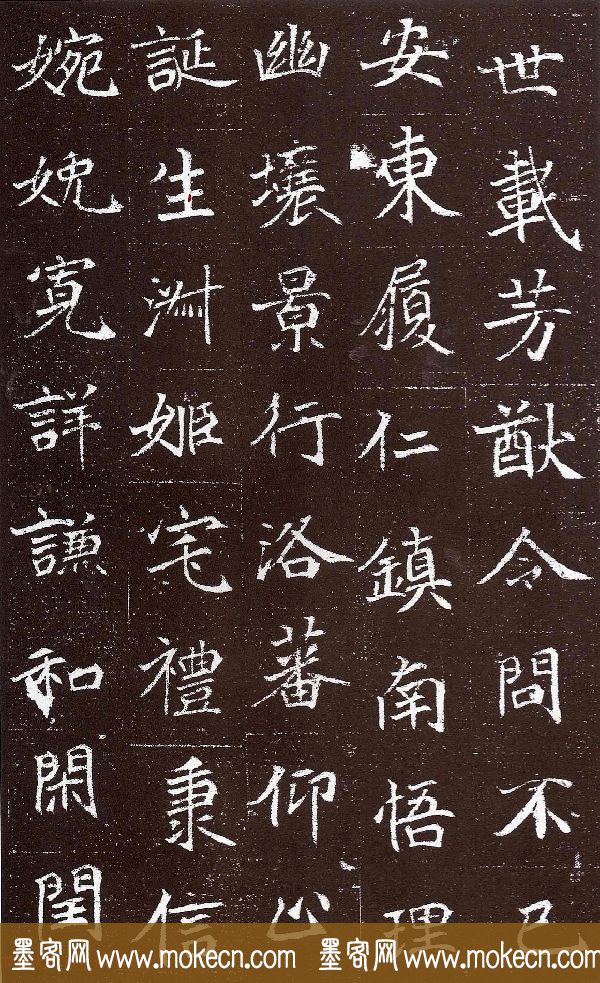 世載芳猷令問不已
安東履仁鎮南悟理
幽壤景行洛蕃仰止
誕生淑姬宅禮秉信
婉娩寬詳謙和閑閏
墨客网 www.mokecn.com 墨客网 www.mokecn.com